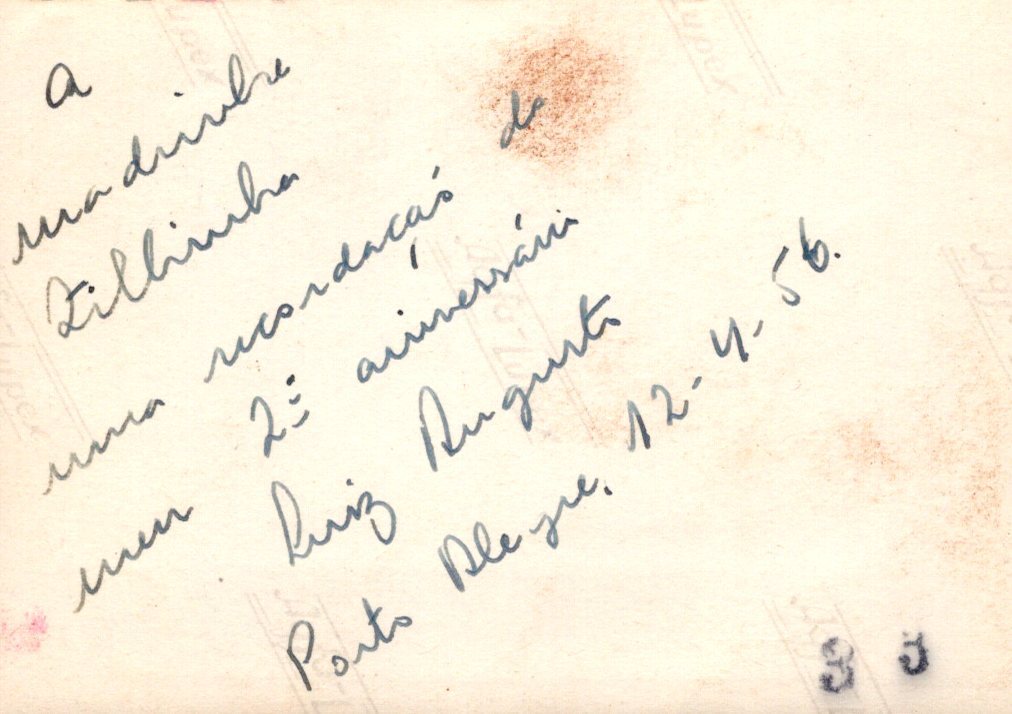 A
madrinha
Zilhinha
uma recordação do
meu 2º aniversário
Luiz Augusto
Porto Alegre. 12-4-56.
33